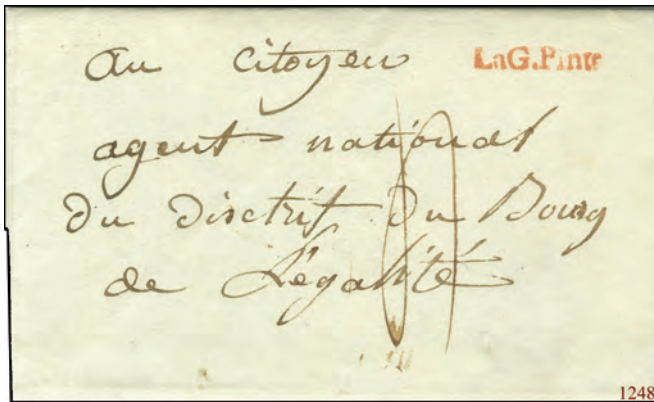 au citoyen LaG.Pinte
agent national
du disctrit du Bourg
de L'égalité
1248